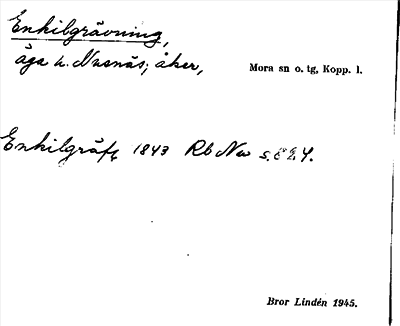 Enkilgrävning,
äga u. Nusnäs; åker,
Mora sn o. tg, Kopp. l.
Enkilgräft 1843 Rb Nu s. 824.
Bror Lindén 1945.